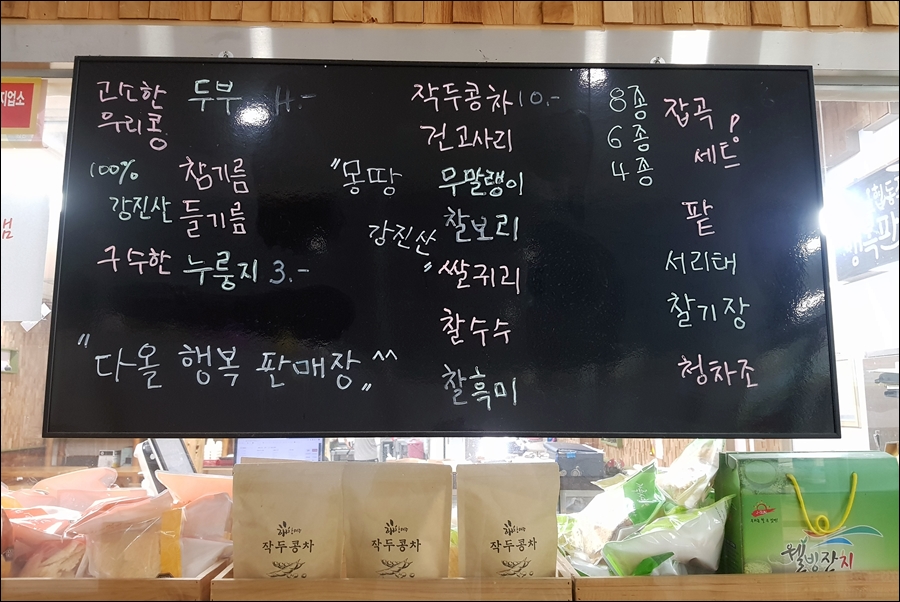 고소한 두부 4.-
우리콩
100% 참기름
강진산 들기름
구수한 누룽지 3.-
"다올 행복 판매장^^"
작두콩차 10.-
건고사리
"몽땅 무말랭이
강진산" 찰보리
쌀귀리
찰수수
찰흑미
8종
6종
4종
잡곡
세트
팥
서리태
찰기장
청차조
작두콩차
작두콩차
작두콩차
웰빙잔치